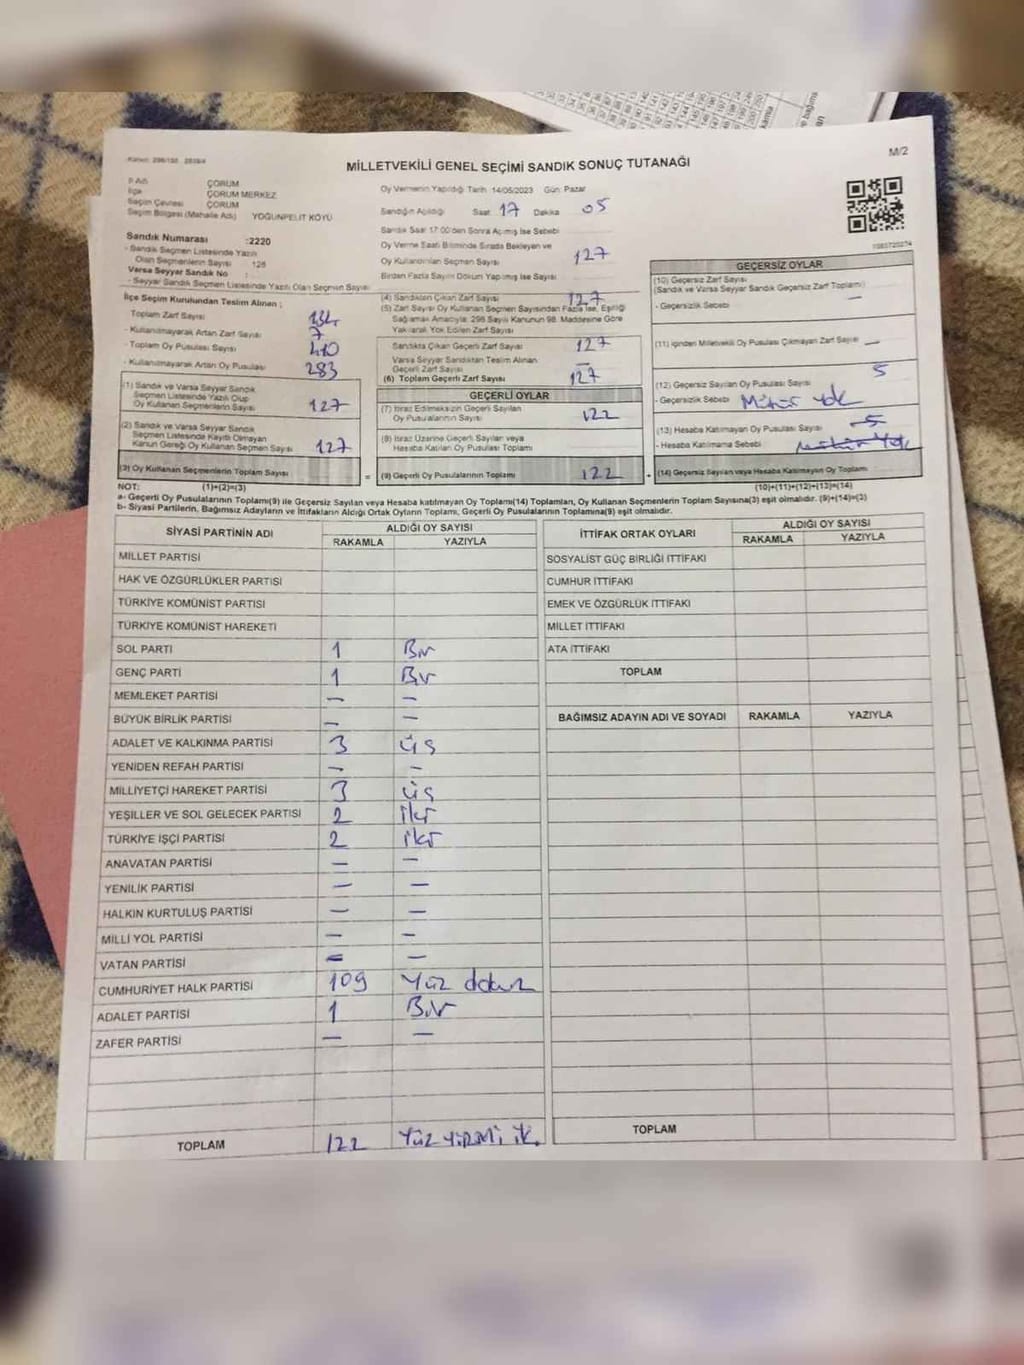 M/2
MİLLETVEKİLİ GENEL SEÇİMİ SANDIK SONUÇ TUTANAĞI
İl Adı ÇORUM
İlçe ÇORUM MERKEZ
Seçim Çevresi ÇORUM
Seçim Bölgesi (Mahalle Adı) YOĞUNPELİT KÖYÜ
Oy Vermenin Yapıldığı Tarih 14/05/2023 Gün: Pazar
Sandığın Açıldığı Saat 17 Dakika 05
Sandık Saat 17:00'den Sonra Açılmış İse Sebebi
Sandık Numarası :2220
- Sandık Seçmen Listesinde Yazılı
Olan Seçmenlerin Sayısı 128
Varsa Seyyar Sandık No :
- Seyyar Sandık Seçmen Listesinde Yazılı Olan Seçmen Sayısı
Oy Verme Saati Bitiminde Sırada Bekleyen ve
Oy Kullandırılan Seçmen Sayısı 127
Birden Fazla Sayım Döküm Yapılmış İse Sayısı
İlçe Seçim Kurulundan Teslim Alınan ;
Toplam Zarf Sayısı 134
- Kullanılmayarak Artan Zarf Sayısı 7
- Toplam Oy Pusulası Sayısı 410
- Kullanılmayarak Artan Oy Pusulası 283
(1) Sandık ve Varsa Seyyar Sandık
Seçmen Listesinde Yazılı Olup
Oy Kullanan Seçmenlerin Sayısı 127
(2) Sandık ve Varsa Seyyar Sandık
Seçmen Listesinde Kayıtlı Olmayan
Kanun Gereği Oy Kullanan Seçmen Sayısı 127
(3) Oy Kullanan Seçmenlerin Toplam Sayısı
(4) Sandıktan Çıkan Zarf Sayısı 127
(5) Zarf Sayısı Oy Kullanan Seçmen Sayısından Fazla İse, Eşitliği
Sağlamak Amacıyla, 298 Sayılı Kanunun 98. Maddesine Göre
Yakılarak Yok Edilen Zarf Sayısı
Sandıkta Çıkan Geçerli Zarf Sayısı 127
Varsa Seyyar Sandıktan Teslim Alınan
Geçerli Zarf Sayısı —
(6) Toplam Geçerli Zarf Sayısı 127
GEÇERLİ OYLAR
(7) İtiraz Edilmeksizin Geçerli Sayılan
Oy Pusulalarının Sayısı 122
(8) İtiraz Üzerine Geçerli Sayılan veya
Hesaba Katılan Oy Pusulaları Toplamı
= (9) Geçerli Oy Pusulalarının Toplamı 122
GEÇERSİZ OYLAR
(10) Geçersiz Zarf Sayısı
(Sandık ve Varsa Seyyar Sandık Geçersiz Zarf Toplamı)
- Geçersizlik Sebebi —
(11) İçinden Milletvekili Oy Pusulası Çıkmayan Zarf Sayısı —
(12) Geçersiz Sayılan Oy Pusulası Sayısı 5
- Geçersizlik Sebebi Mühür Yok
(13) Hesaba Katılmayan Oy Pusulası Sayısı 5
- Hesaba Katılmama Sebebi Mühür Yok
+ (14) Geçersiz Sayılan veya Hesaba Katılmayan Oy Toplamı
NOT: (1)+(2)=(3) (10)+(11)+(12)+(13)=(14)
a- Geçerli Oy Pusulalarının Toplamı(9) ile Geçersiz Sayılan veya Hesaba katılmayan Oy Toplamı(14) Toplamları, Oy Kullanan Seçmenlerin Toplam Sayısına(3) eşit olmalıdır. (9)+(14)=(3)
b- Siyasi Partilerin, Bağımsız Adayların ve İttifakların Aldığı Ortak Oyların Toplamı, Geçerli Oy Pusulalarının Toplamına(9) eşit olmalıdır.
SİYASİ PARTİNİN ADI ALDIĞI OY SAYISI
RAKAMLA YAZIYLA
MİLLET PARTİSİ
HAK VE ÖZGÜRLÜKLER PARTİSİ
TÜRKİYE KOMÜNİST PARTİSİ
TÜRKİYE KOMÜNİST HAREKETİ
SOL PARTİ 1 Bir
GENÇ PARTİ 1 Bir
MEMLEKET PARTİSİ — —
BÜYÜK BİRLİK PARTİSİ — —
ADALET VE KALKINMA PARTİSİ 3 üç
YENİDEN REFAH PARTİSİ — —
MİLLİYETÇİ HAREKET PARTİSİ 3 üç
YEŞİLLER VE SOL GELECEK PARTİSİ 2 iki
TÜRKİYE İŞÇİ PARTİSİ 2 iki
ANAVATAN PARTİSİ — —
YENİLİK PARTİSİ — —
HALKIN KURTULUŞ PARTİSİ — —
MİLLİ YOL PARTİSİ — —
VATAN PARTİSİ — —
CUMHURİYET HALK PARTİSİ 109 Yüz dokuz
ADALET PARTİSİ 1 Bir
ZAFER PARTİSİ — —
TOPLAM 122 Yüz yirmi iki
İTTİFAK ORTAK OYLARI ALDIĞI OY SAYISI
RAKAMLA YAZIYLA
SOSYALİST GÜÇ BİRLİĞİ İTTİFAKI
CUMHUR İTTİFAKI
EMEK VE ÖZGÜRLÜK İTTİFAKI
MİLLET İTTİFAKI
ATA İTTİFAKI
TOPLAM
BAĞIMSIZ ADAYIN ADI VE SOYADI RAKAMLA YAZIYLA
TOPLAM